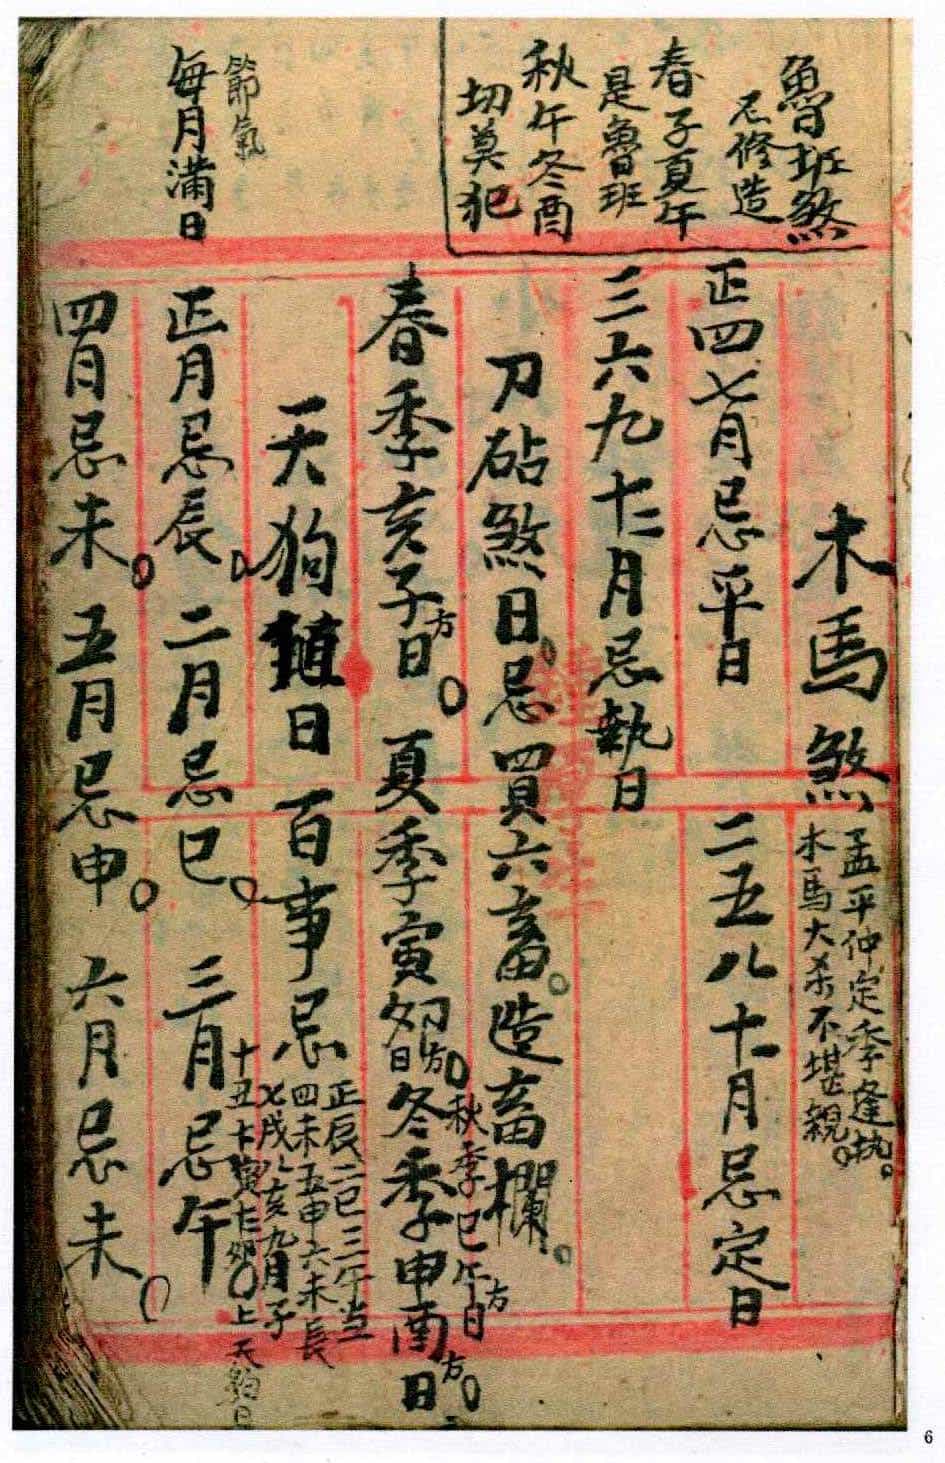 魯班煞
忌修造
春子夏午
是魯班
秋午冬酉
切莫犯
節氣
每月滿日
木馬煞
孟平仲定季逢执。
木馬大杀不堪親。
正四七月忌平日 二五八十一月忌定日
三六九十二月忌執日
刀砧煞日。忌買六畜。造畜欄。
春季亥子日方。夏季寅卯日方。
秋季巳午日方
冬季申酉日方。
天狗日 百事忌
正辰二巳三午当
四未五申六未長
七戌八亥九月子
十丑十寅十二卯。上天狗日
正月忌辰。二月忌巳。三月忌午
四月忌未。五月忌申。六月忌未。
6